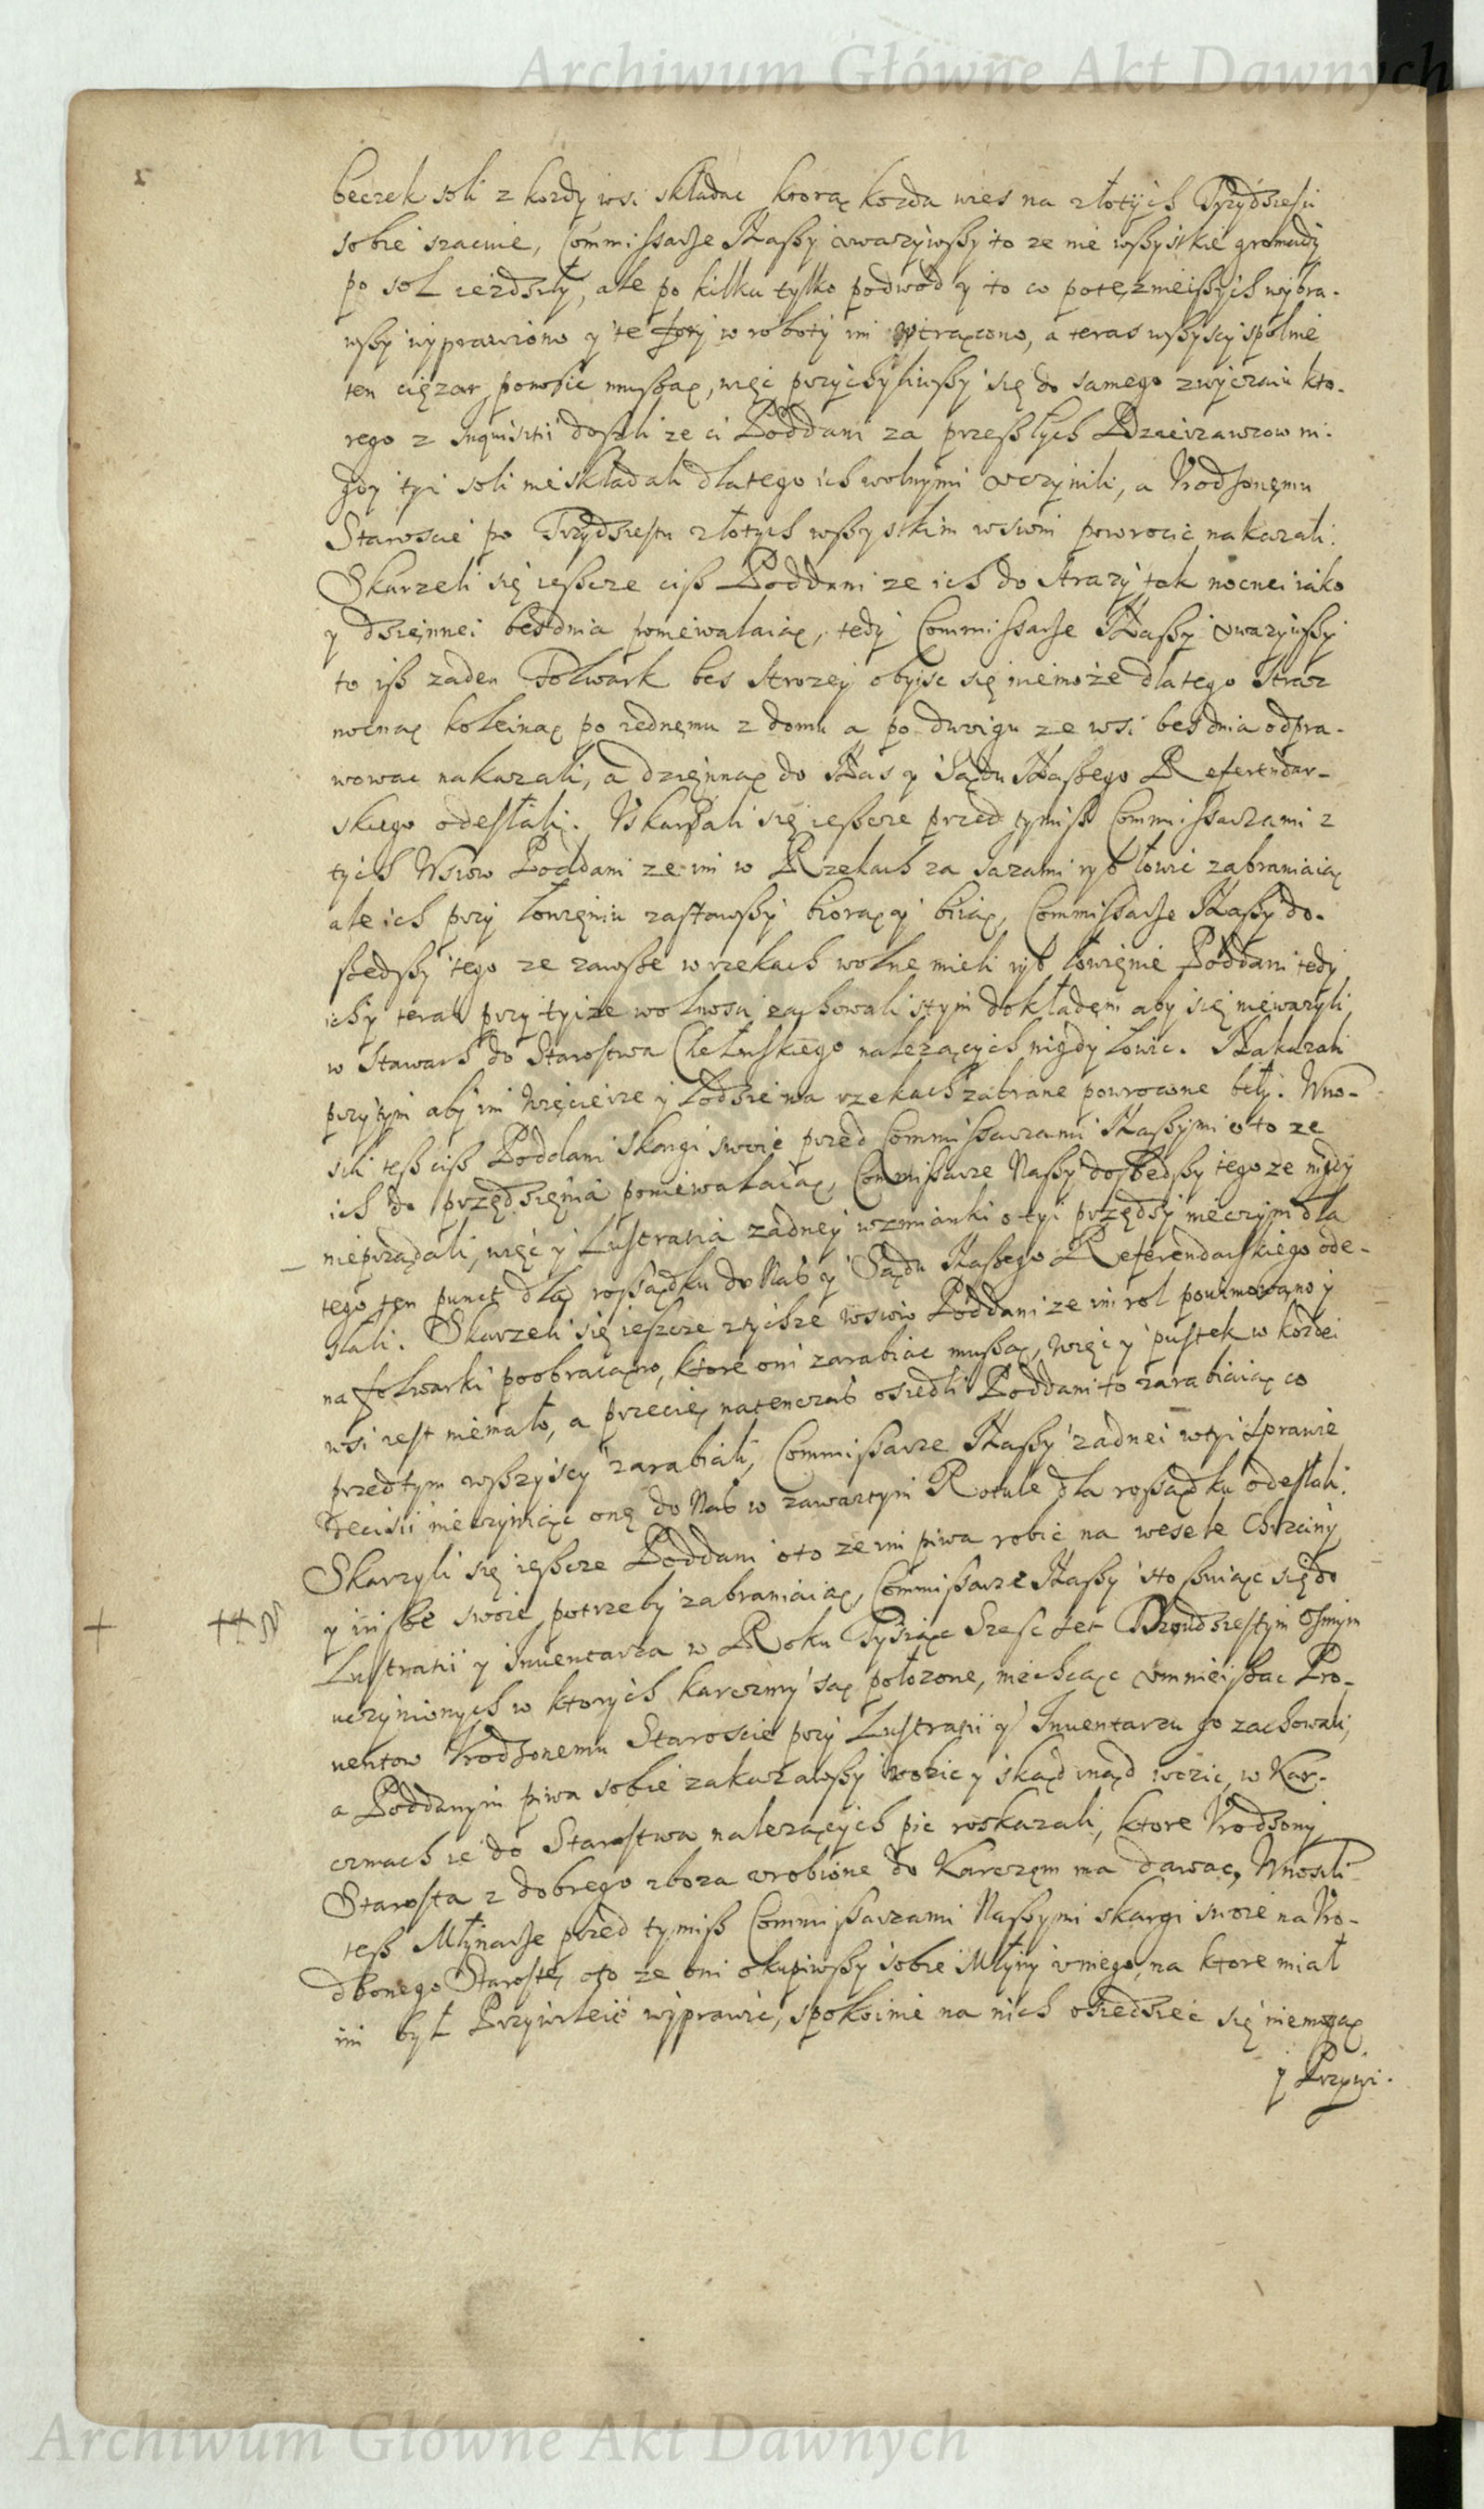 Archiwum Główne Akt Dawnych
beczek soli z kozdy wsi składac ktorą kozda wies na złotych Trzydziesu
sobie szacuie, Commissarze Naszy uwazywszy to ze nie wszystkie gromady
po sol iezdziły, ale po kilku tylko podwod y to co potęznieiszych wybra-
wszy wyprawiono y te foty w roboty im wtrącono, a teras wszyscy spolnie
ten cięzar ponosic muszą, więc przychyliwszy się do samego zwyczaiu kto-
rego z Inquisitii doszli ze ci Poddani za przeszłych Dzierzawcow ni-
gdy tyi soli nieskładali dlatego ich wolnymi uczynili, a Urodzonęmu
Staroscie po Trzydziestu złotych wszystkim wsiom powrocic nakazali.
Skarzeli się ieszcze cisz Poddani ze ich do strazy tak nocnei iako
y dzięnnei besdnia poniewalaią, tedy Commissarze Naszy uwazywszy
to isz zaden Folwark bes strozey obyisc się niemoże dlatego straz
nocną koleiną po iednęmu z domu a po dwoigu ze wsi besdnia odpra-
wowac nakazali, a dzięnną do Nas y Sądu Naszego Referendar-
skiego odesłali. Uskarzali się ieszcze przed tymisz Commissarzami z
tych Wsiow Poddani ze im w Rzekach za sazami ryb łowic zabraniaią
ale ich przy łowięniu zastawszy biorą y biią, Commissarze Naszy do-
szedszy tego ze zawsze w rzekach wolne mieli ryb łowięnie Poddani tedy
ichy teras przy tyize wolnosci zachowali stym dokładęm aby się nieważyli
w Stawach do Starostwa Chełmskiego nalezących nigdy łowic. Nakazali
przytym aby im Więcierze y Łodzie na rzekach zabrane powrocone beły. Wno-
sili tesz cisz Poddani skargi swoie przed Commissarzami Naszymi oto ze
ich do przędzięnia poniewalaią, Commissarze Naszy doszedszy tego ze nigdy
nieprządali, więc y Lustratia zadney wzmianki o tyi przędzy nieczyni dla
tego ten punct dla rossądku do Nas y Sądu Naszego Referendarskiego ode-
słali. Skarzeli się ieszcze ztychze wsiow Poddani ze im rol pouimowano y
na folwarki poobracano, ktore oni zarabiac muszą, więc y pustek w kozdei
wsi iest niemało, a przecię natenczas osiedli Poddani to zarabiaią co
przedtym wszyscy zarabiali, Commissarze Naszy zadnei wtyi Sprawie
Decisii nieczyniąc onę do Nas w zawartym Rotule dla rossądku odesłali.
Skarzyli się ieszcze Poddani oto ze im piwa robic na wesele Chrzciny
y insze swoie potrzeby zabraniaią, Commissarze Naszy stosuiąc się do
Lustratii y Inuentarza w Roku Tysiąc Szesc Set Dwudziestym Osmym
uczynionych w ktorych karczmy są położone, niechcąc umnieiszac Pro-
uentow Urodzonemu Staroscie przy Lustratii y Inuentarzu go zachowali,
a Poddanym piwa sobie zakazawszy robic y skąd inąd wozic, w Kar-
czmach ie do Starostwa nalezących pic roskazali, ktore Urodzony
Starosta z dobrego zboza urobione do Karczęm ma dawac, Wnosili
tesz Młynarze przed tymisz Commissarzami Naszymi skargi swoie na Uro-
dzonego Starostę, oto ze oni okupiwszy sobie Młyny u niego, na ktore miał
im był Przywileie wyprawic, spokoinie na nich osiedziec się niemogą
y Przywi-
Archiwum Główne Akt Dawnych